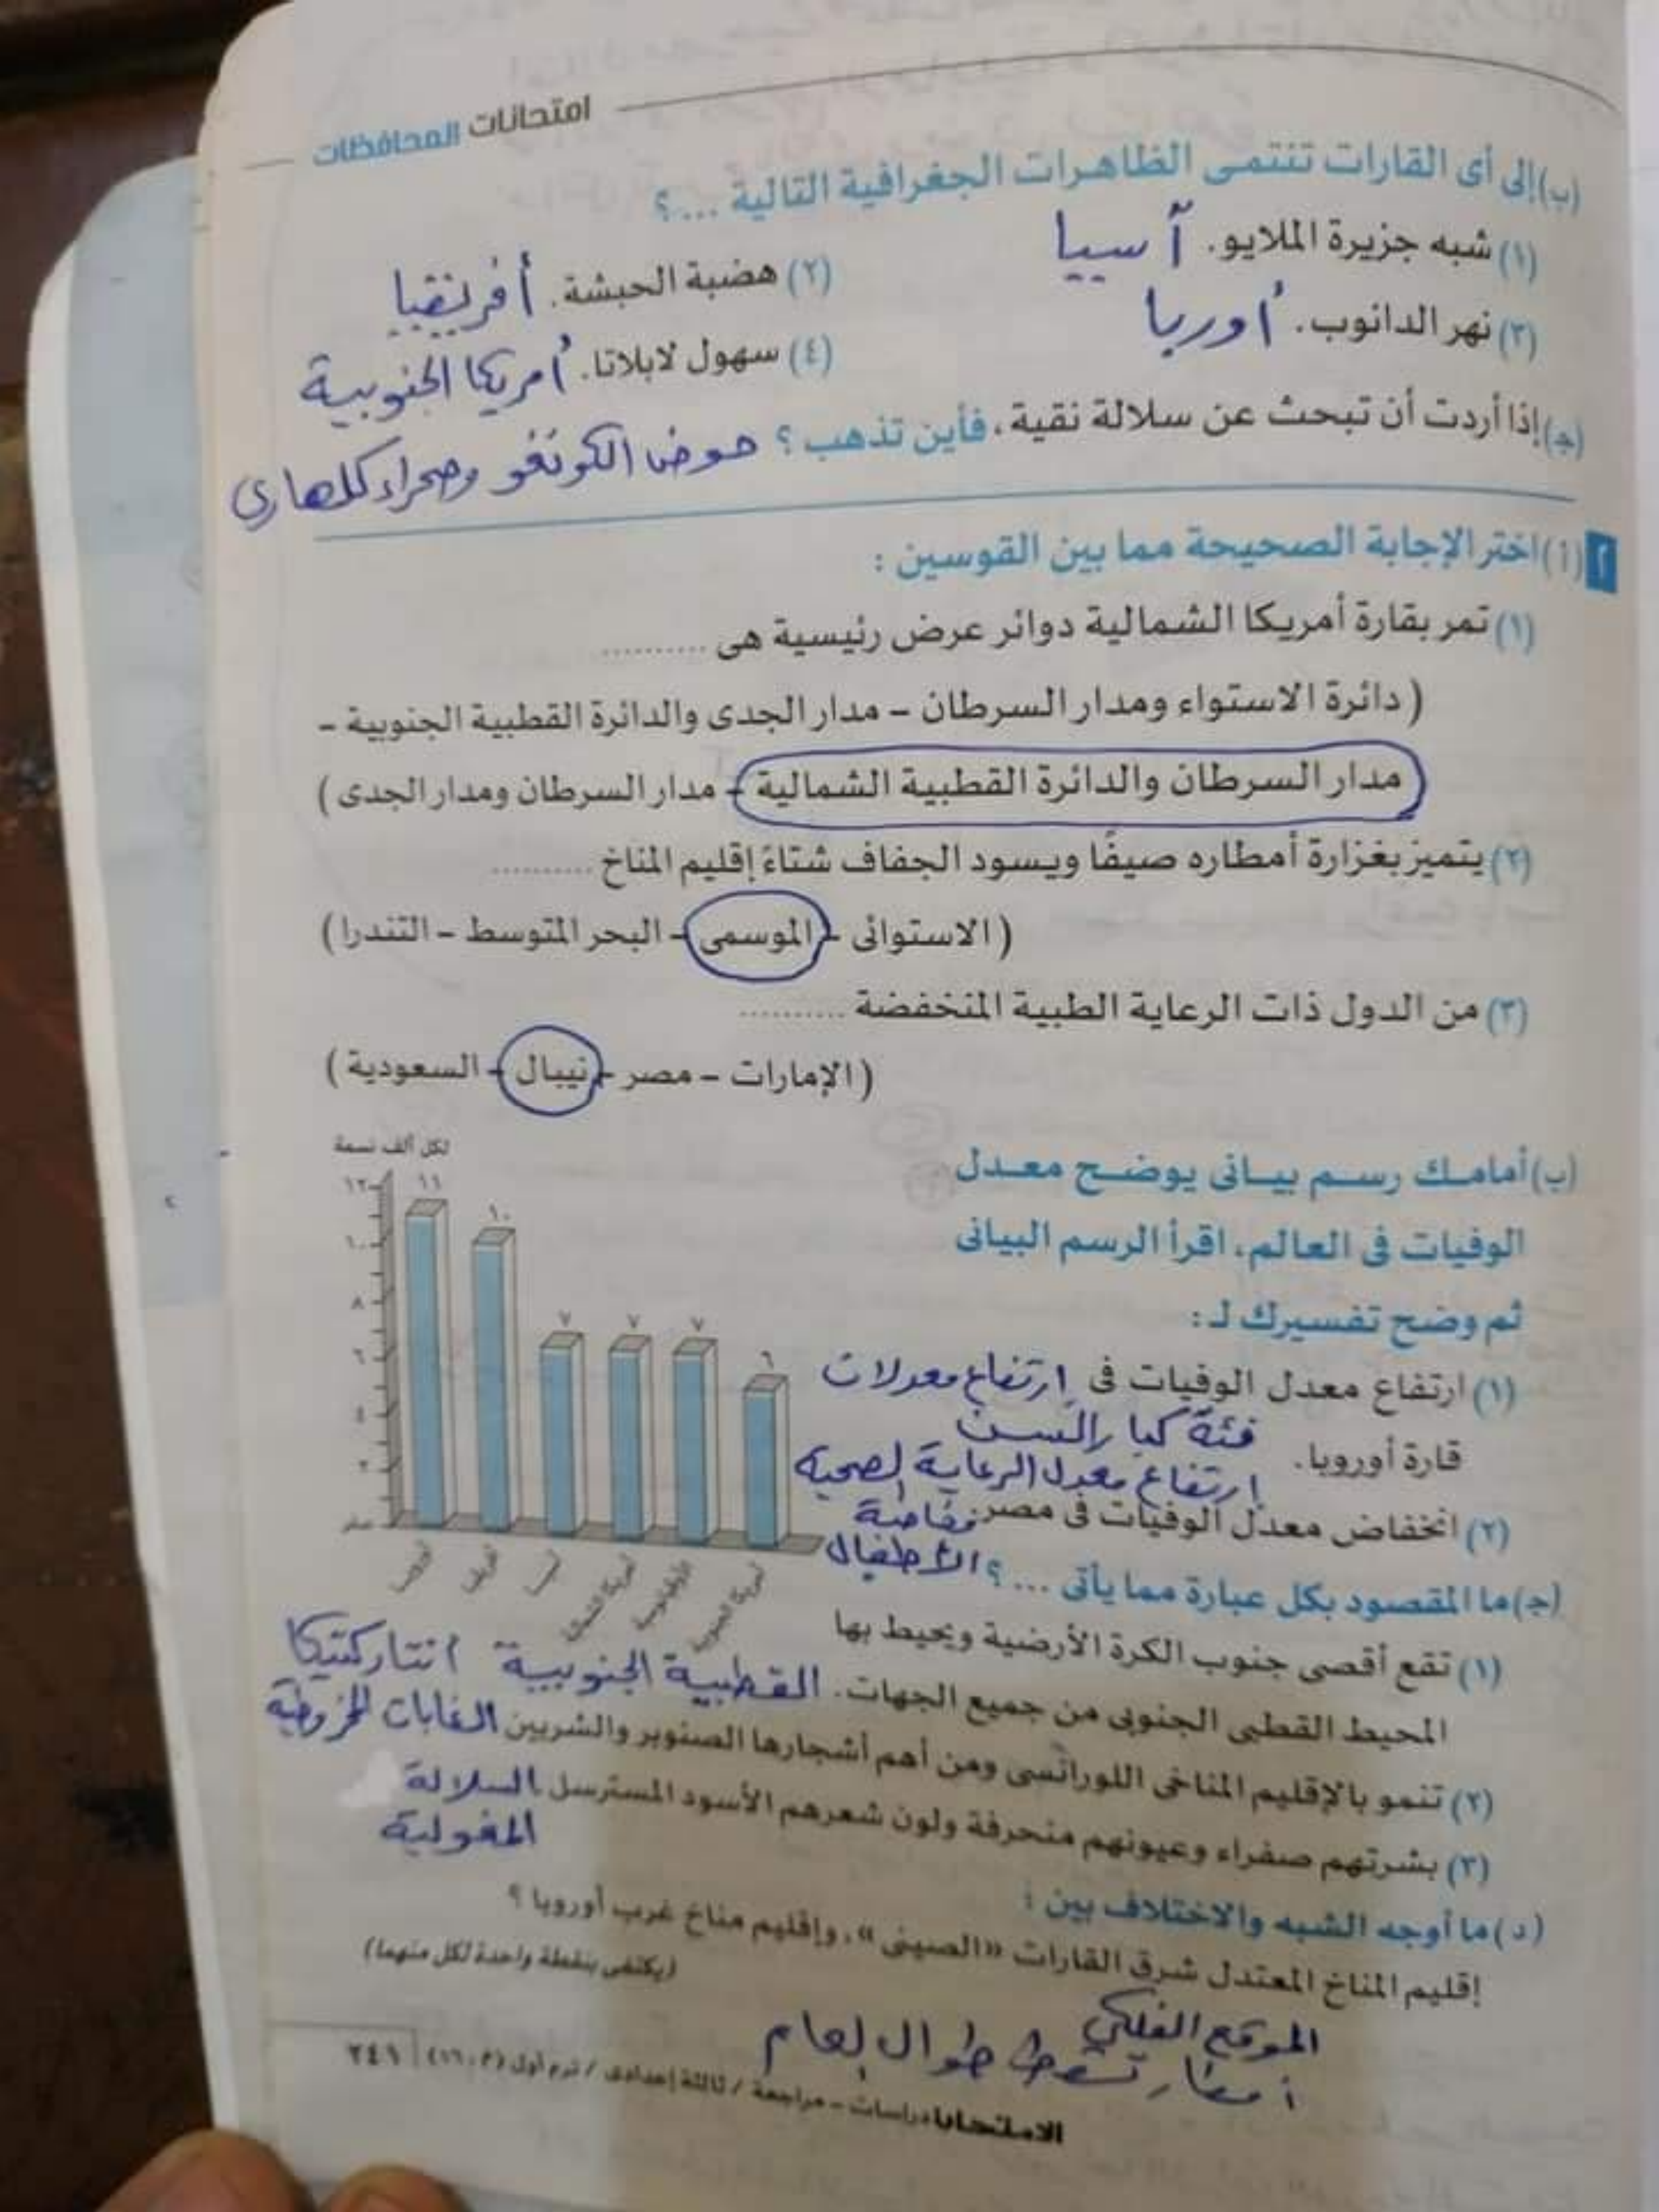 امتحانات المحافظات
(ب) إلى أى القارات تنتمى الظاهرات الجغرافية التالية ...؟
(١) شبه جزيرة الملايو. آسيا
(٢) هضبة الحبشة. أفريقيا
(٣) نهر الدانوب. أوربا
(٤) سهول لابلاتا. أمريكا الجنوبية
(ج) إذا أردت أن تبحث عن سلالة نقية، فأين تذهب؟ حوض الكونغو وصحراء كلهارى
٢ (أ) اختر الإجابة الصحيحة مما بين القوسين :
(١) تمر بقارة أمريكا الشمالية دوائر عرض رئيسية هى ..........
( دائرة الاستواء ومدار السرطان – مدار الجدى والدائرة القطبية الجنوبية –
مدار السرطان والدائرة القطبية الشمالية – مدار السرطان ومدار الجدى )
(٢) يتميز بغزارة أمطاره صيفًا ويسود الجفاف شتاءً إقليم المناخ ..........
( الاستوائى – الموسمى – البحر المتوسط – التندرا )
(٣) من الدول ذات الرعاية الطبية المنخفضة ..........
( الإمارات – مصر – نيبال – السعودية )
(ب) أمامك رسم بيانى يوضح معدل
الوفيات فى العالم، اقرأ الرسم البيانى
ثم وضح تفسيرك لـ :
(١) ارتفاع معدل الوفيات فى إرتفاع معدلات
فئة كبار السن
قارة أوروبا.
ارتفاع معدل الرعاية الصحية
(٢) انخفاض معدل الوفيات فى مصر خاصة
الأطفال
لكل ألف نسمة
١٢
١٠
٨
٦
٤
٢
صفر
١١
١٠
٧
٧
٧
٦
أوروبا
أفريقيا
آسيا
أمريكا الشمالية
الأوقيانوسية
أمريكا الجنوبية
(ج) ما المقصود بكل عبارة مما يأتى ...؟
(١) تقع أقصى جنوب الكرة الأرضية ويحيط بها
المحيط القطبى الجنوبى من جميع الجهات. القطبية الجنوبية انتاركتيكا
(٢) تنمو بالإقليم المناخى اللورانسى ومن أهم أشجارها الصنوبر والشربين الغابات المخروطية
(٣) بشرتهم صفراء وعيونهم منحرفة ولون شعرهم الأسود المسترسل السلالة
المغولية
(د) ما أوجه الشبه والاختلاف بين :
إقليم المناخ المعتدل شرق القارات «الصينى»، وإقليم مناخ غرب أوروبا ؟
(يكتفى بنقطة واحدة لكل منهما)
الموقع الفلكي
أمطار تسقط طوال العام
دراسات – مراجعة / ثالثة إعدادى / ترم أول (م : ١٦) ٢٤١